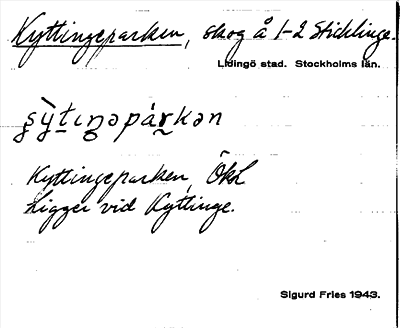 Kyttingeparken, skog å 1-2 Sticklinge.
Lidingö stad. Stockholms län.
Kyttingeparken, Ökl
Ligger vid Kyttinge.
Sigurd Fries 1943.